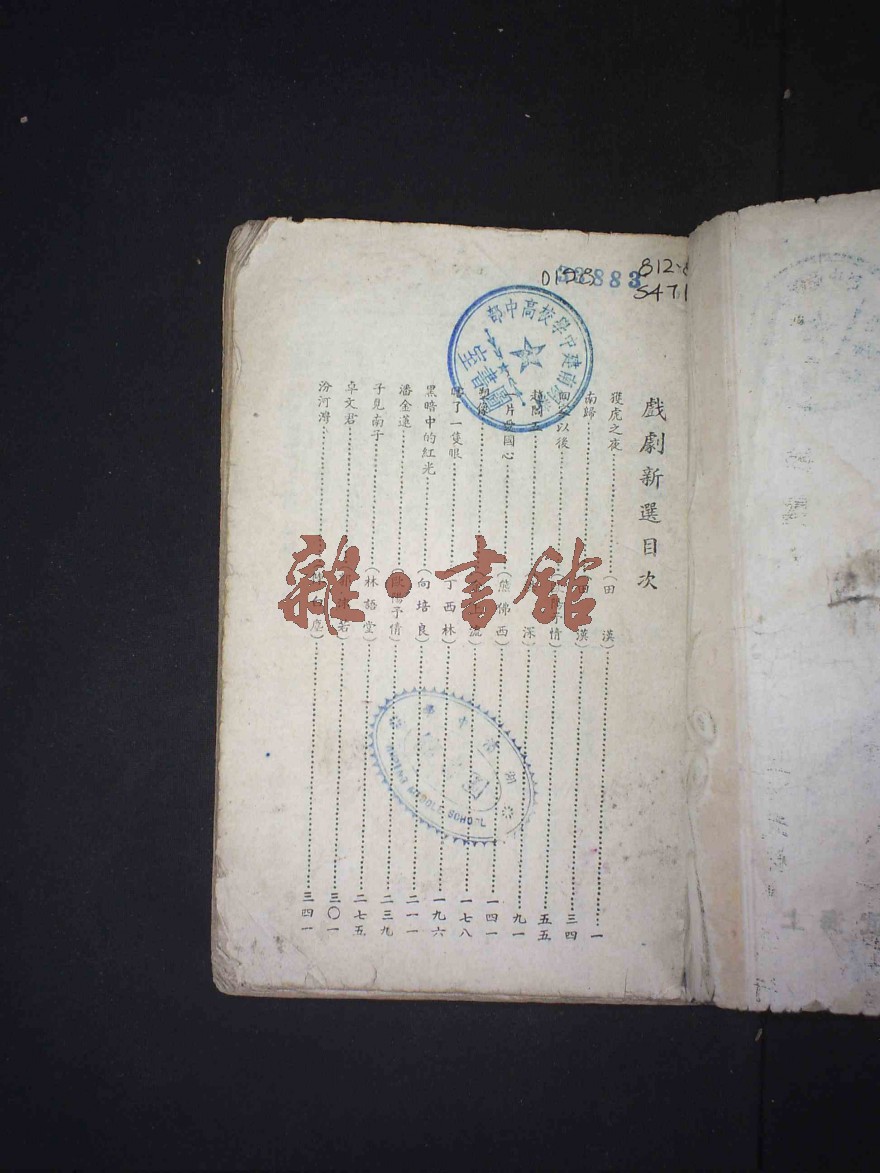 戲劇新選目次
獲虎之夜(田漢)一
南歸(田漢)三四
以後予情)五五
趙閻王深)九一
片愛國心(熊佛西)一四一
一七八
瞎了一隻眼丁西林)一九六
黑暗中的紅光(向培良)二一一
潘金蓮(歐陽予倩)二三九
子見南子(林語堂)二七五
卓文君三〇一
汾河灣(陳白塵)三四一
雜·書館
38883
812.8
S471
學校高中部
圖書室
SCHOOL